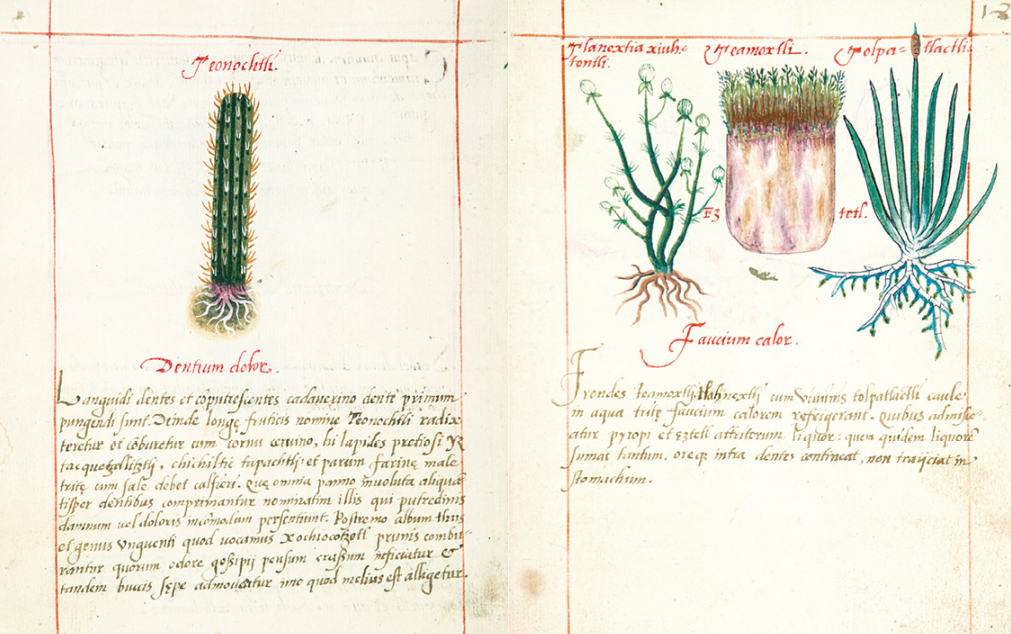 Teonochtli.
Dentium dolor.
Languidi dentes et coputrescentes cadauerino dente primum
pungendi sunt. Deinde longe fruticis nomine Teonochtli radix
teretur et coburetur cum cornu ceruino, hi lapides pretiosi
chichiltic tapachtli: et parum farine male
trite cum sale debet calfieri. Que omnia panno inuoluta aliqua
tisper dentibus comprimantur nominatim illis qui putredinis
damnum uel doloris incomodum persentiunt. Postremo album thus
et genus unguenti quod uocamus xochiocotzotl prunis combu-
rantur quorum odore gossipij pensum crassum inficiatur &
tandem buccis sepe admoueatur imo quod melius est alligetur.
13
Tlanextia xiuh- Teamoxtli. Tolpa= tlactli.
tontli.
Ez tetl.
Faucium calor.
Frondes teamoxtli, tlahnextij cum tolpatlactli caule
in aqua trite faucium calorem refrigerant. Quibus admisce-
atur pyropi et eztetl attritorum liquor: quem quidem liquore
sumat tantum, oreq intra dentes contineat, non traijciat in
stomachum.